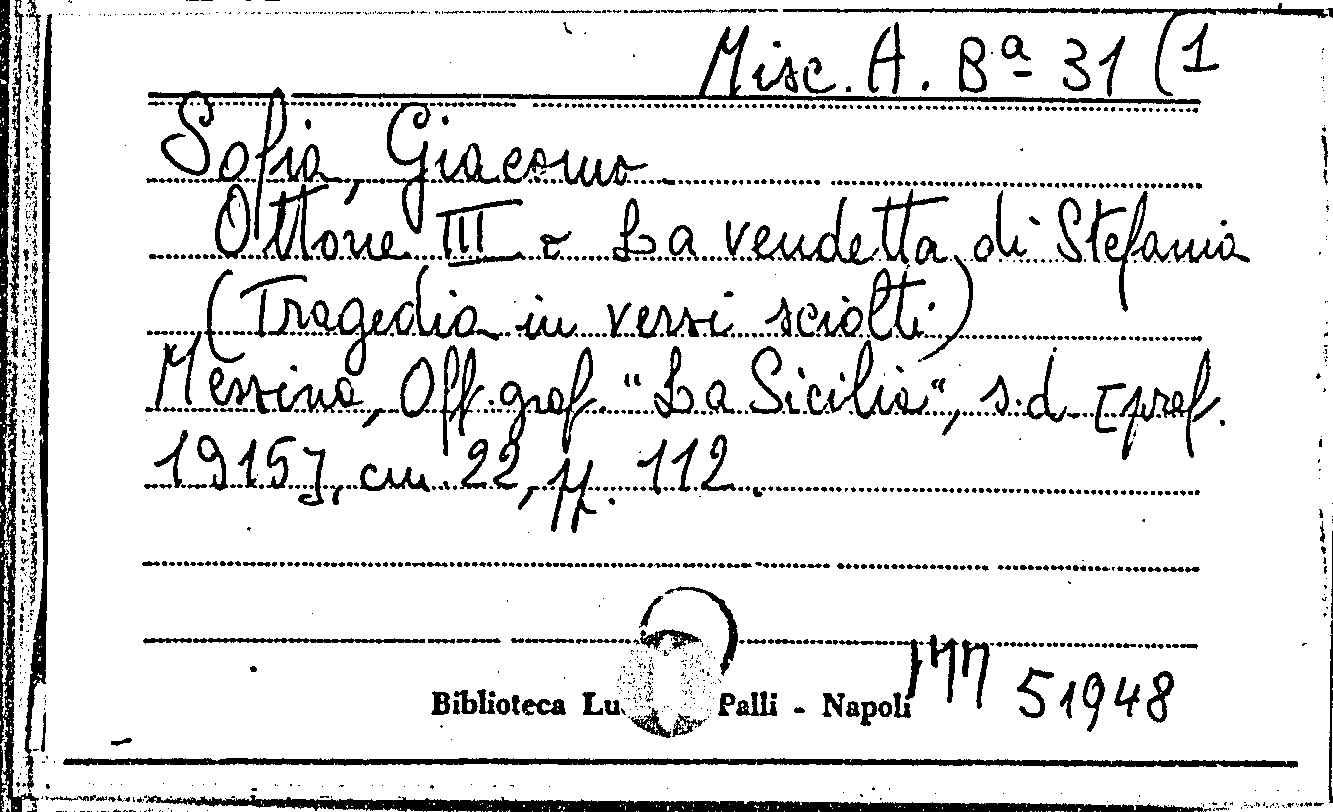 Misc. A. Bª 31 (1
Sofia, Giacomo
Ottone III o La vendetta di Stefania
(Tragedia in versi sciolti)
Messina, Off. graf. "La Sicilia", s.d. [pref.
1915], cm. 22, pp. 112.
Biblioteca Palli - Napoli
51948